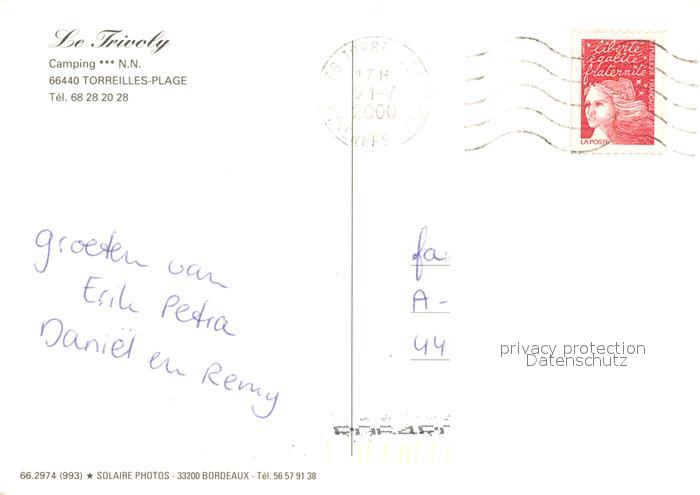 Le Trivoly
Camping *** N.N.
66440 TORREILLES-PLAGE
Tél. 68 28 20 28
17H
21-7
2000
liberté
égalité
fraternité
LA POSTE
groeten van
Erik Petra
Daniël en Remy
fa
A-
44
privacy protection
Datenschutz
66.2974 (993) ★ SOLAIRE PHOTOS - 33200 BORDEAUX - Tél. 56 57 91 38